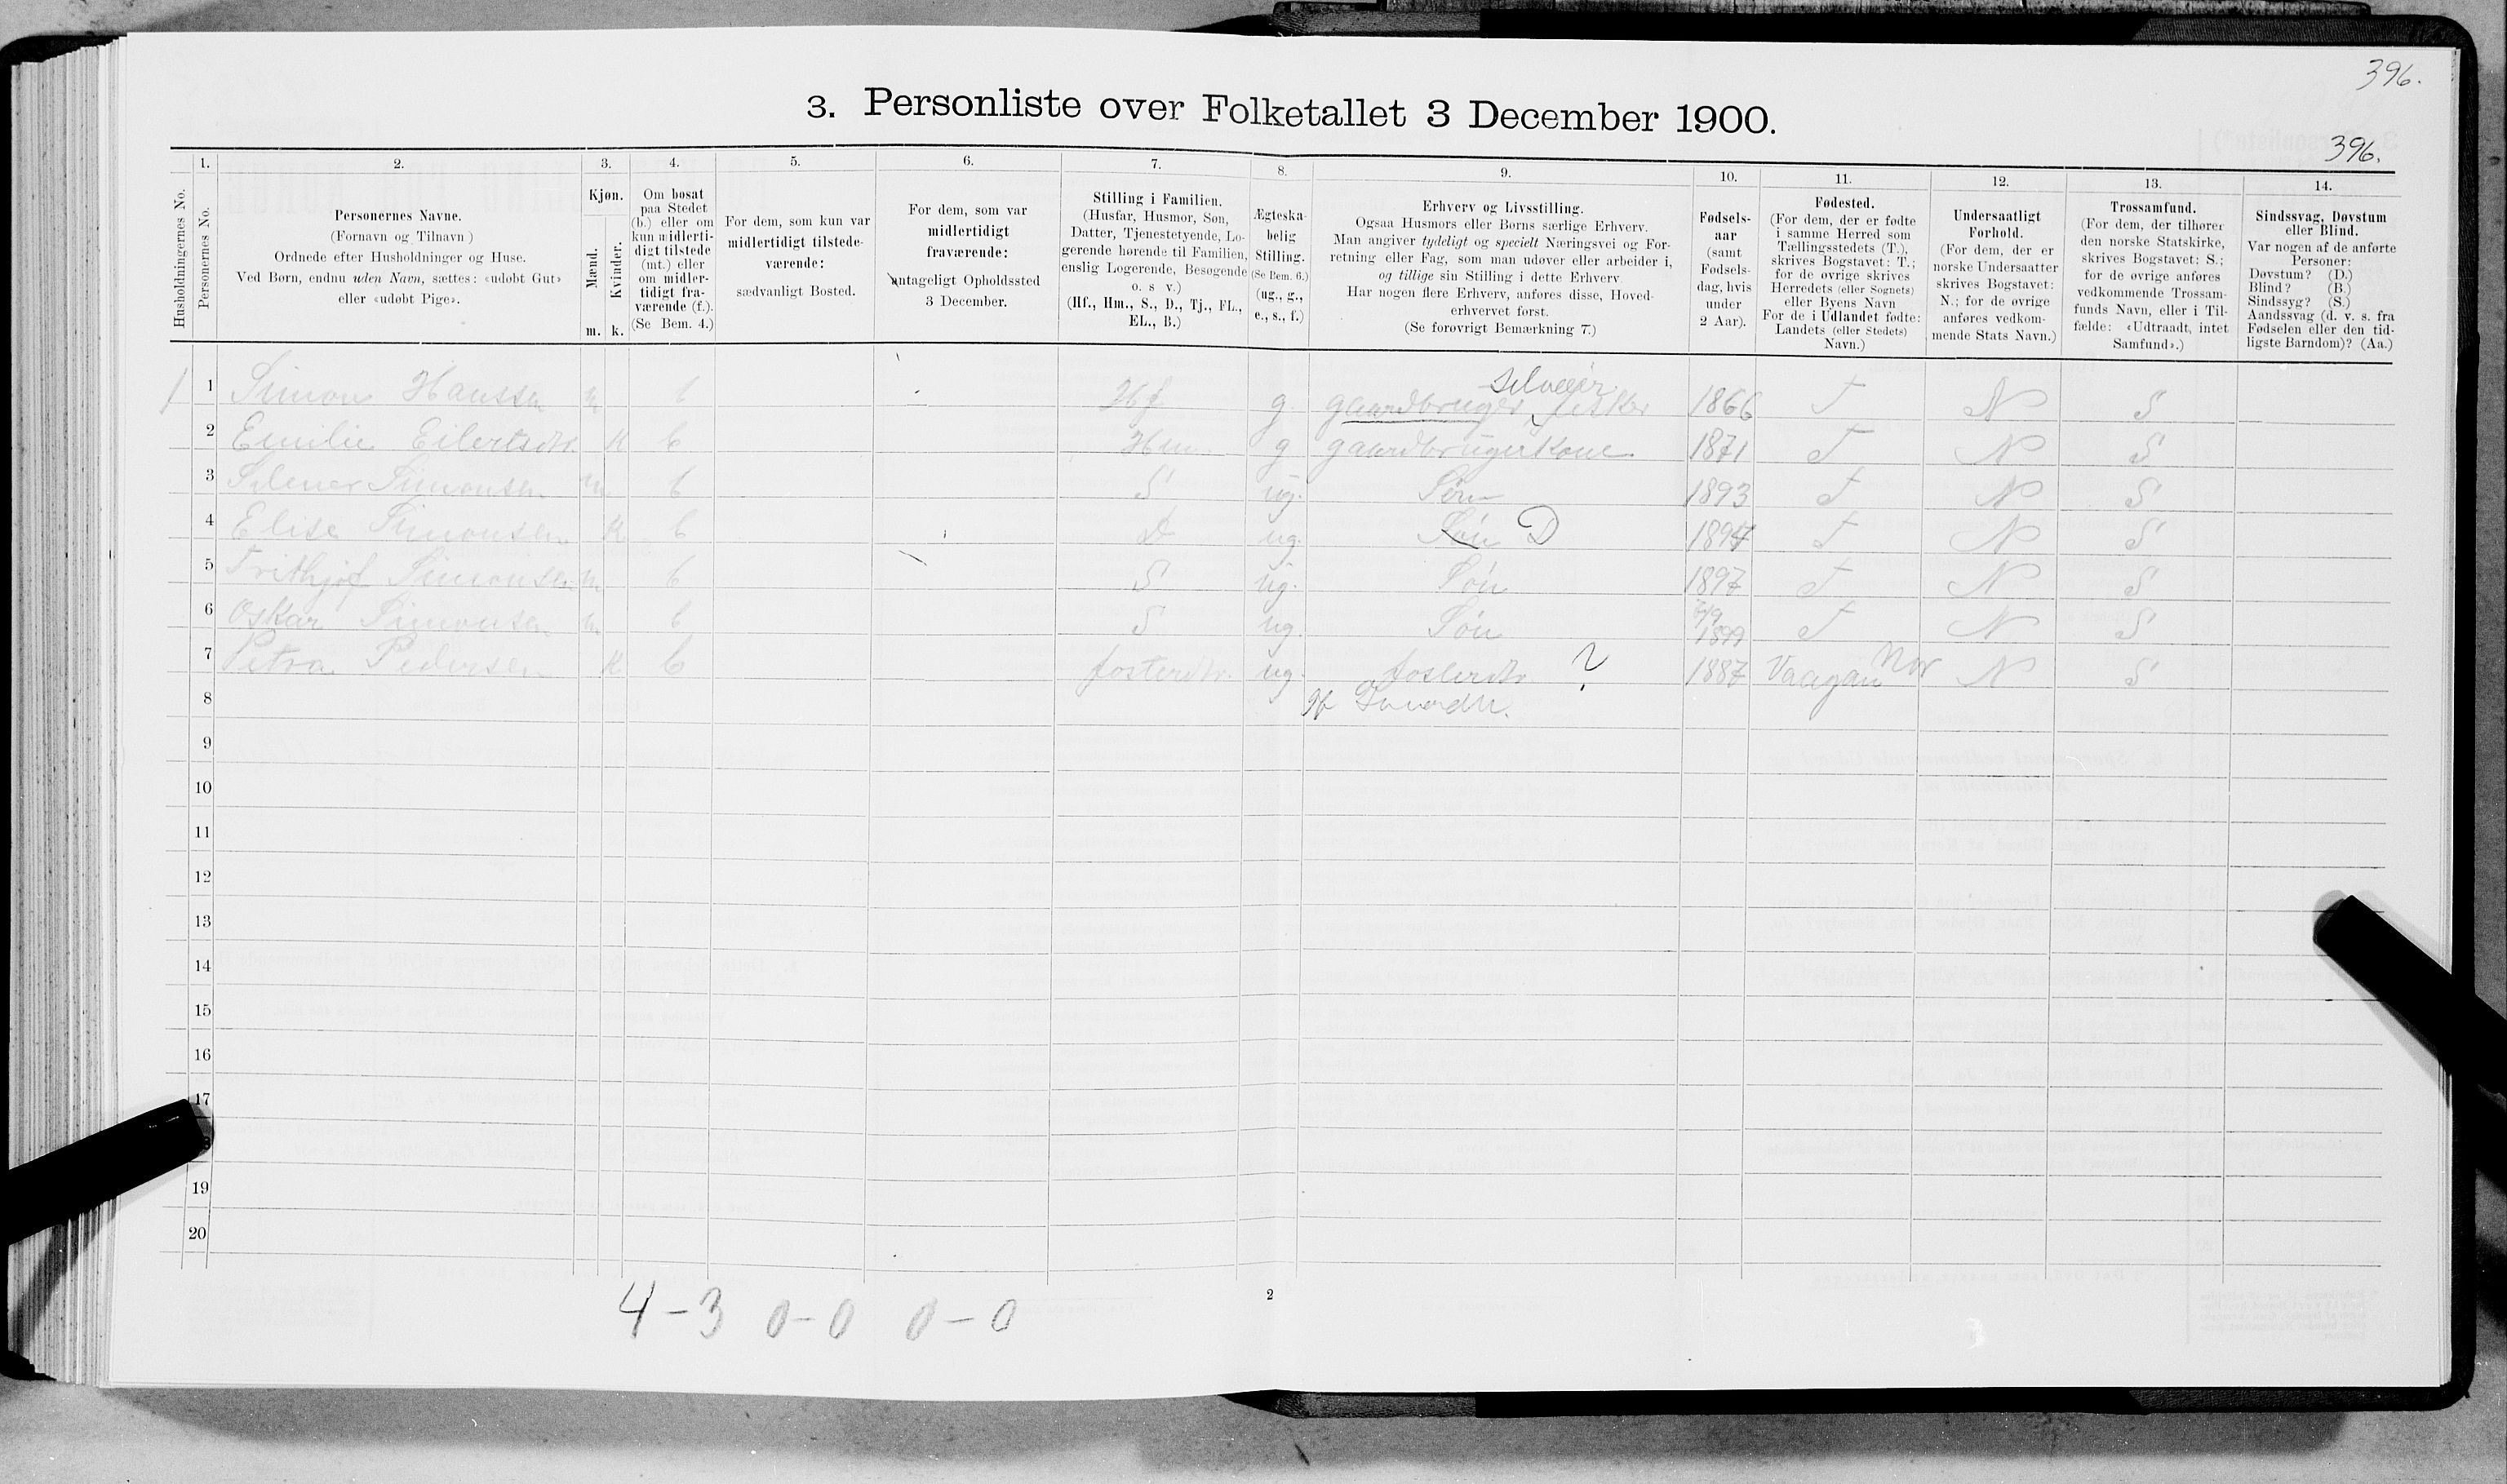 396.
3. Personliste over Folketallet 3 December 1900.
396.
1. 2. 3. 4. 5. 6. 7. 8. 9. 10. 11. 12. 13. 14.
Husholdningernes No.
Personernes No.
Personernes Navne.
(Fornavn og Tilnavn)
Ordnede efter Husholdninger og Huse.
Ved Børn, endnu uden Navn, sættes: «udøbt Gut»
eller «udøbt Pige».
Kjøn.
Mænd.
Kvinder.
m. k.
Om bosat
paa Stedet
(b.) eller om
kun midlerti-
digt tilstede
(mt.) eller
om midler-
tidigt fra-
værende (f.).
(Se Bem. 4.)
For dem, som kun var
midlertidigt tilstede-
værende:
sædvanligt Bosted.
For dem, som var
midlertidigt
fraværende:
antageligt Opholdssted
3 December.
Stilling i Familien.
(Husfar, Husmor, Søn,
Datter, Tjenestetyende, Lo-
gerende hørende til Familien,
enslig Logerende, Besøgende
o. s v.)
(Hf., Hm., S., D., Tj., FL.,
EL., B.)
Ægteska-
belig
Stilling.
(Se Bem. 6.)
(ug., g.,
e., s., f.)
Erhverv og Livsstilling.
Ogsaa Husmors eller Børns særlige Erhverv.
Man angiver tydeligt og specielt Næringsvei og For-
retning eller Fag, som man udøver eller arbeider i,
og tillige sin Stilling i dette Erhverv.
Har nogen flere Erhverv, anføres disse, Hoved-
erhvervet først.
(Se forøvrigt Bemærkning 7.)
Fødsels-
aar
(samt
Fødsels-
dag, hvis
under
2 Aar).
Fødested.
(For dem, der er fødte
i samme Herred som
Tællingsstedets (T.),
skrives Bogstavet: T.;
for de øvrige skrives
Herredets (eller Sognets)
eller Byens Navn
For de i Udlandet fødte:
Landets (eller Stedets)
Navn.)
Undersaatligt
Forhold.
(For dem, der er
norske Undersaatter
skrives Bogstavet:
N.; for de øvrige
anføres vedkom-
mende Stats Navn.)
Trossamfund.
(For dem, der tilhører
den norske Statskirke,
skrives Bogstavet: S.;
for de øvrige anføres
vedkommende Trossam-
funds Navn, eller i Til-
fælde: «Udtraadt, intet
Samfund».)
Sindssvag, Døvstum
eller Blind.
Var nogen af de anførte
Personer:
Døvstum? (D.)
Blind? (B.)
Sindssyg? (S.)
Aandssvag (d. v. s. fra
Fødselen eller den tid-
ligste Barndom)? (Aa.)
selveier
1 Simon Hanssen m b Hf g. gaardbruger, fisker 1866 T N S
2 Emilie Eilertsdtr. k b Hm. g gaardbrugerkone 1871 T N S
3 Simonsen m. b S ug. Søn 1893 T N S
4 Elise Simonsen k b D ug. Søn D 1894 T N S
5 Frithjof Simonsen m. b S ug. Søn 1897 T N S
6 Oskar Simonsen m b S ug. Søn 1899 T N S
7 Petra Pedersen k b fosterdtr. ug. fosterdtr. ? 1887 Vaagan N S
8
9
10
11
12
13
14
15
16
17
19
20
4-3 0-0 0-0
2